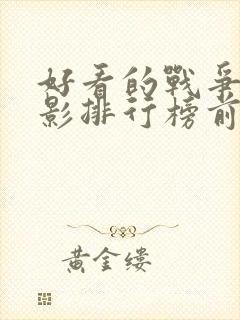 好看的戰爭
影排行榜前
黃金缕